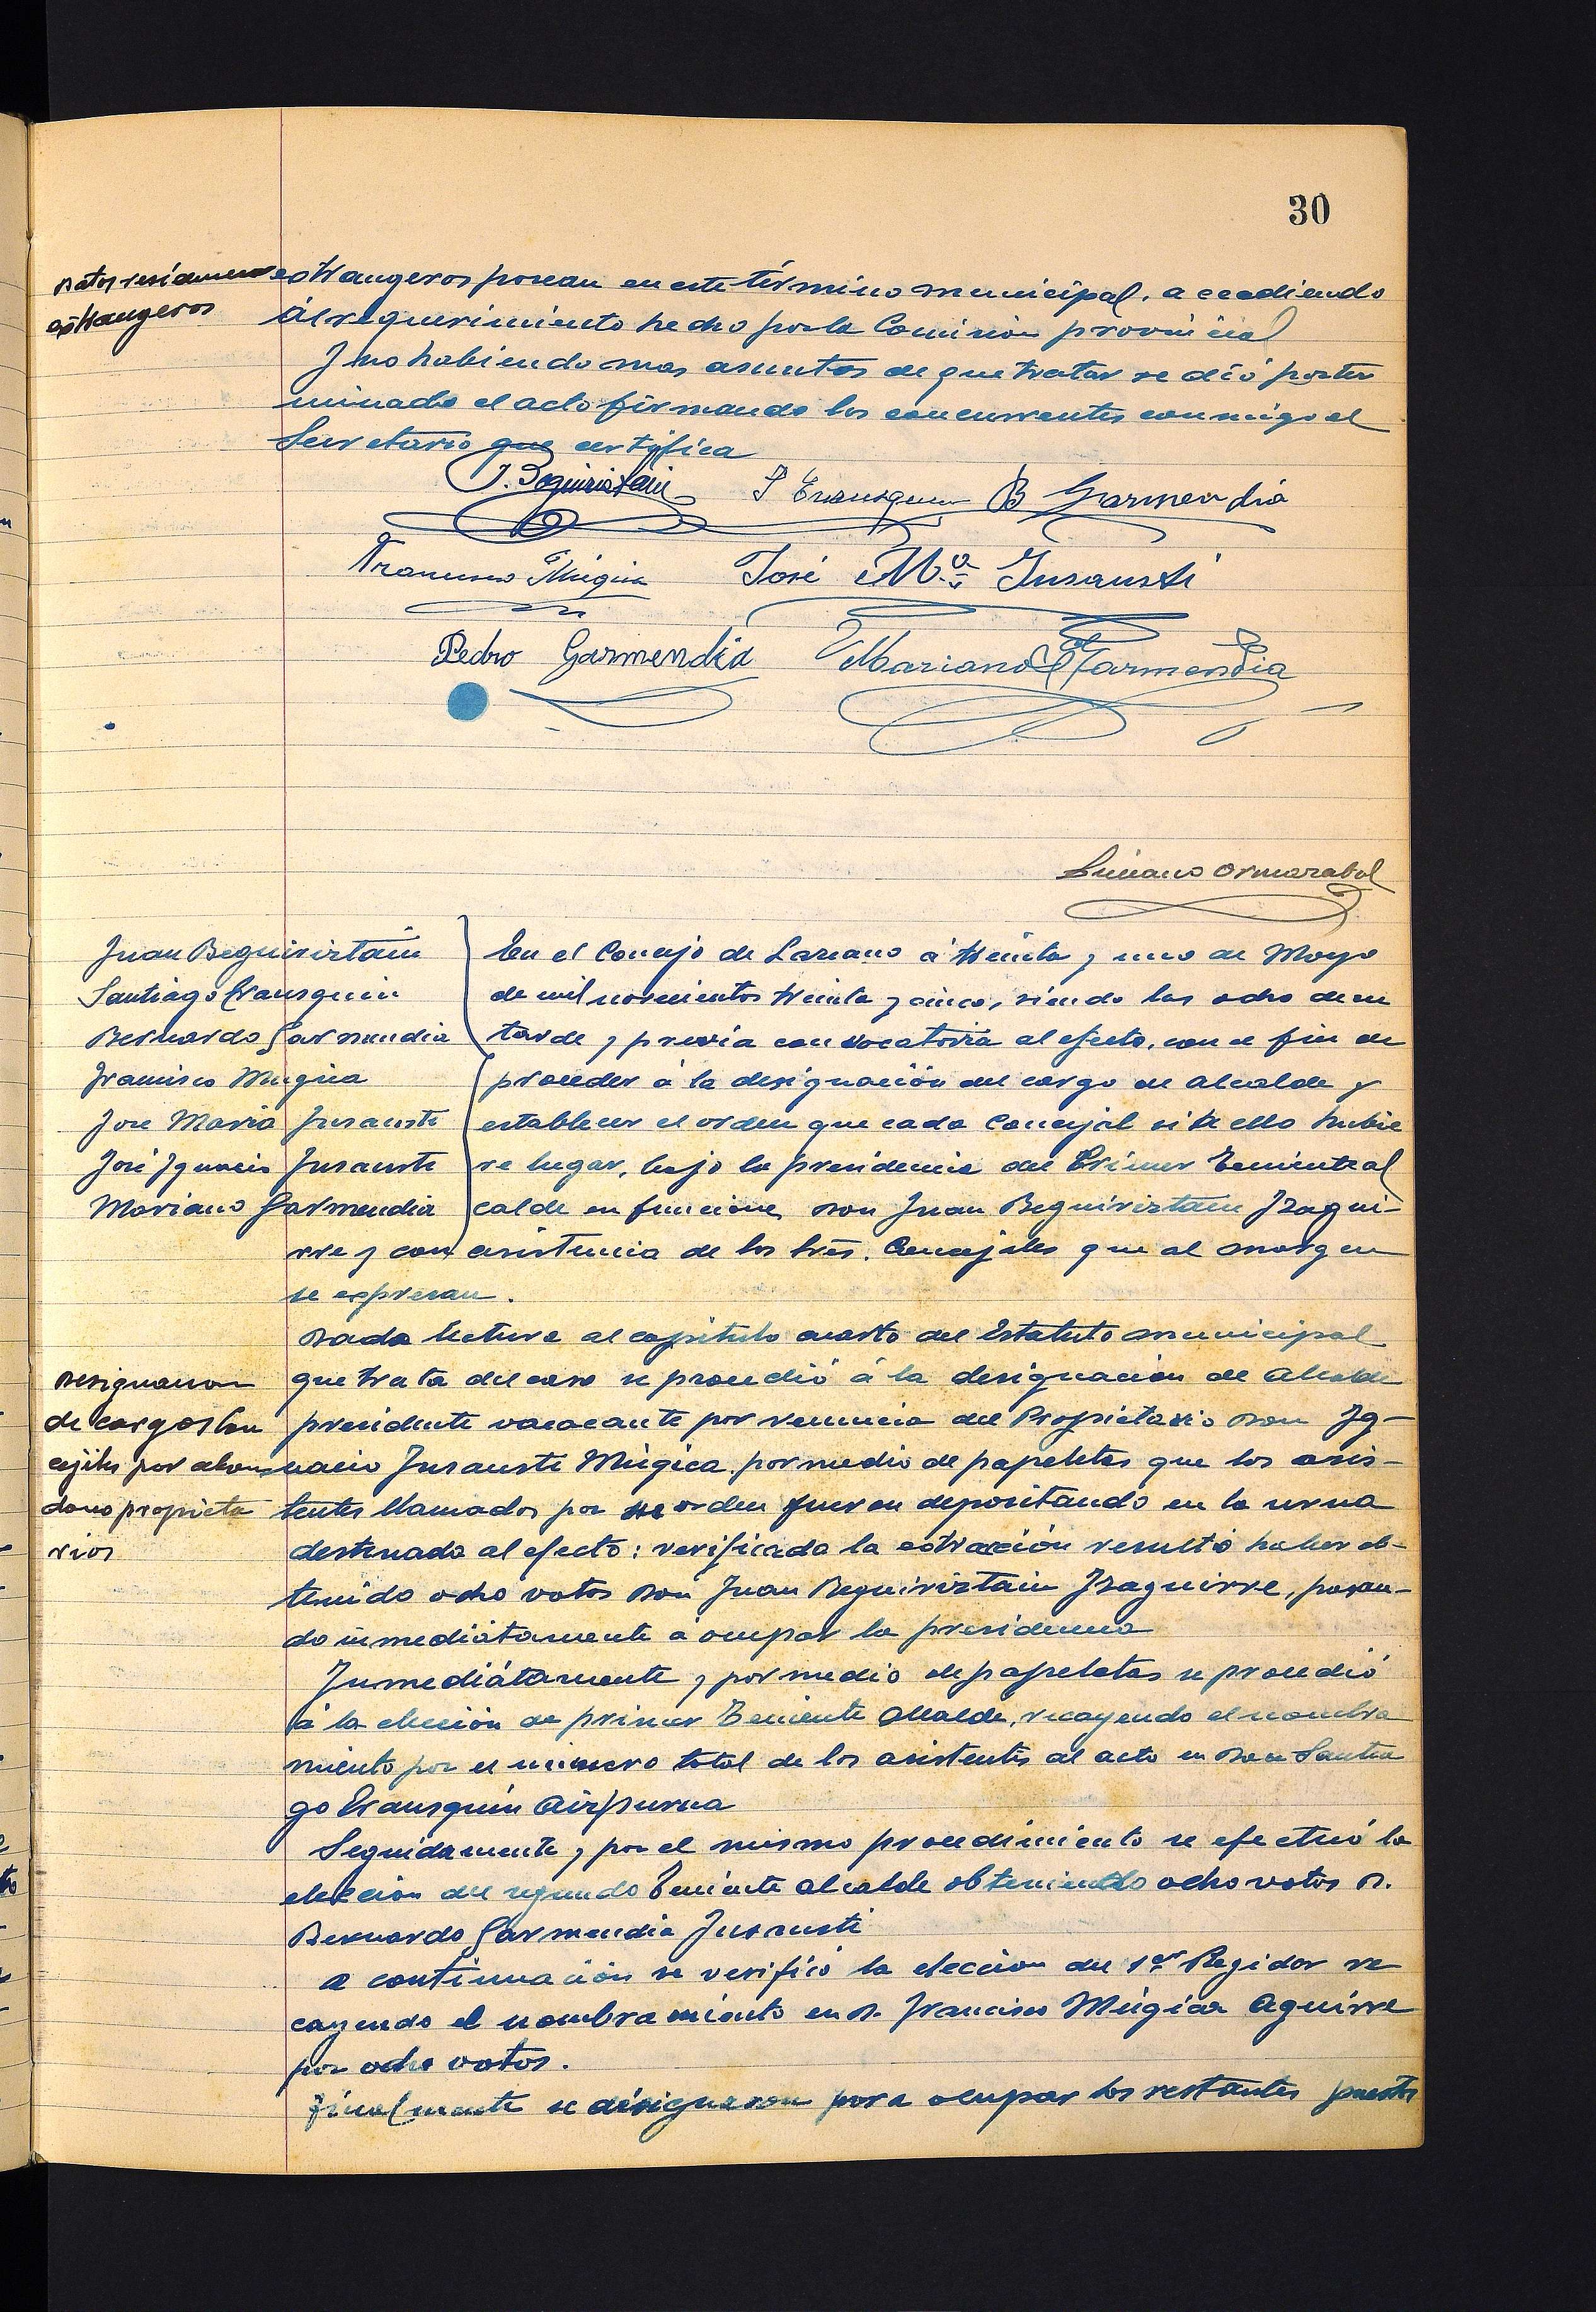 30
Datos residencia
estrangeros
estrangeros posean en este término municipal, accediendo
al requerimiento hecho por la Comisión provincial
Y no habiendo mas asuntos de que tratar se dió por ter
minado el acto firmando los concurrentes conmigo el
Secretario que certifica
J. Beguiristain S Erausquin B Garmendia
Francisco Múgica José Mª Insausti
Pedro Garmendia Mariano Garmendia
Luciano Ormazabal
Juan Beguiristain
Santiago Erausquin
Bernardo Garmendia
Francisco Mugica
Jose Maria Insausti
José Ygnacio Insausti
Mariano Garmendia
En el Concejo de Lazcano á treinta y uno de Mayo
de mil novecientos treinta y cinco, siendo las ocho de su
tarde y previa convocatoria al efecto, con el fin de
proceder á la designación del cargo de alcalde y
establecer el orden que cada Concejal si á ello hubie
re lugar, bajo la presidencia del Primer Teniente al
calde en funciones Don Juan Beguiristain Yzagui-
rre y con asistencia de los tres. Concejales que al margen
se expresan.
Dada lectura al capitulo cuarto del Estatuto municipal
Designacion
de cargos con
cejiles por
propieta
rios
que trata del caso se procedió á la designación de Alcalde
presidente vacacante por renuncia del Propietario Don Yg-
nacio Insausti Múgica, por medio de papeletas que los asis-
tentes llamados por su orden fueron depositando en la urna
destinada al efecto: verificada la extracción resultó haber ob-
tenido ocho votos Don Juan Beguiristain Yzaguirre, pasan-
do inmediátamente á ocupar la presidencia
Inmediátamente y por medio de papeletas se procedió
á la elección de primer Teniente Alcalde, recayendo el nombra
miento por el número total de los asistentes al acto en Don Santia
go Erausquin Aizpurua
Seguidamente y por el mismo procedimiento se efectuó la
elección del segundo Teniente alcalde obteniendo ocho votos D.
Bernardo Garmendia Insausti
A continuación se verificó la elección del 1er Regidor re
cayendo el nombramiento en D. Francisco Múgica Aguirre
por ocho votos.
Finalmente se designaron para ocupar los restantes puestos